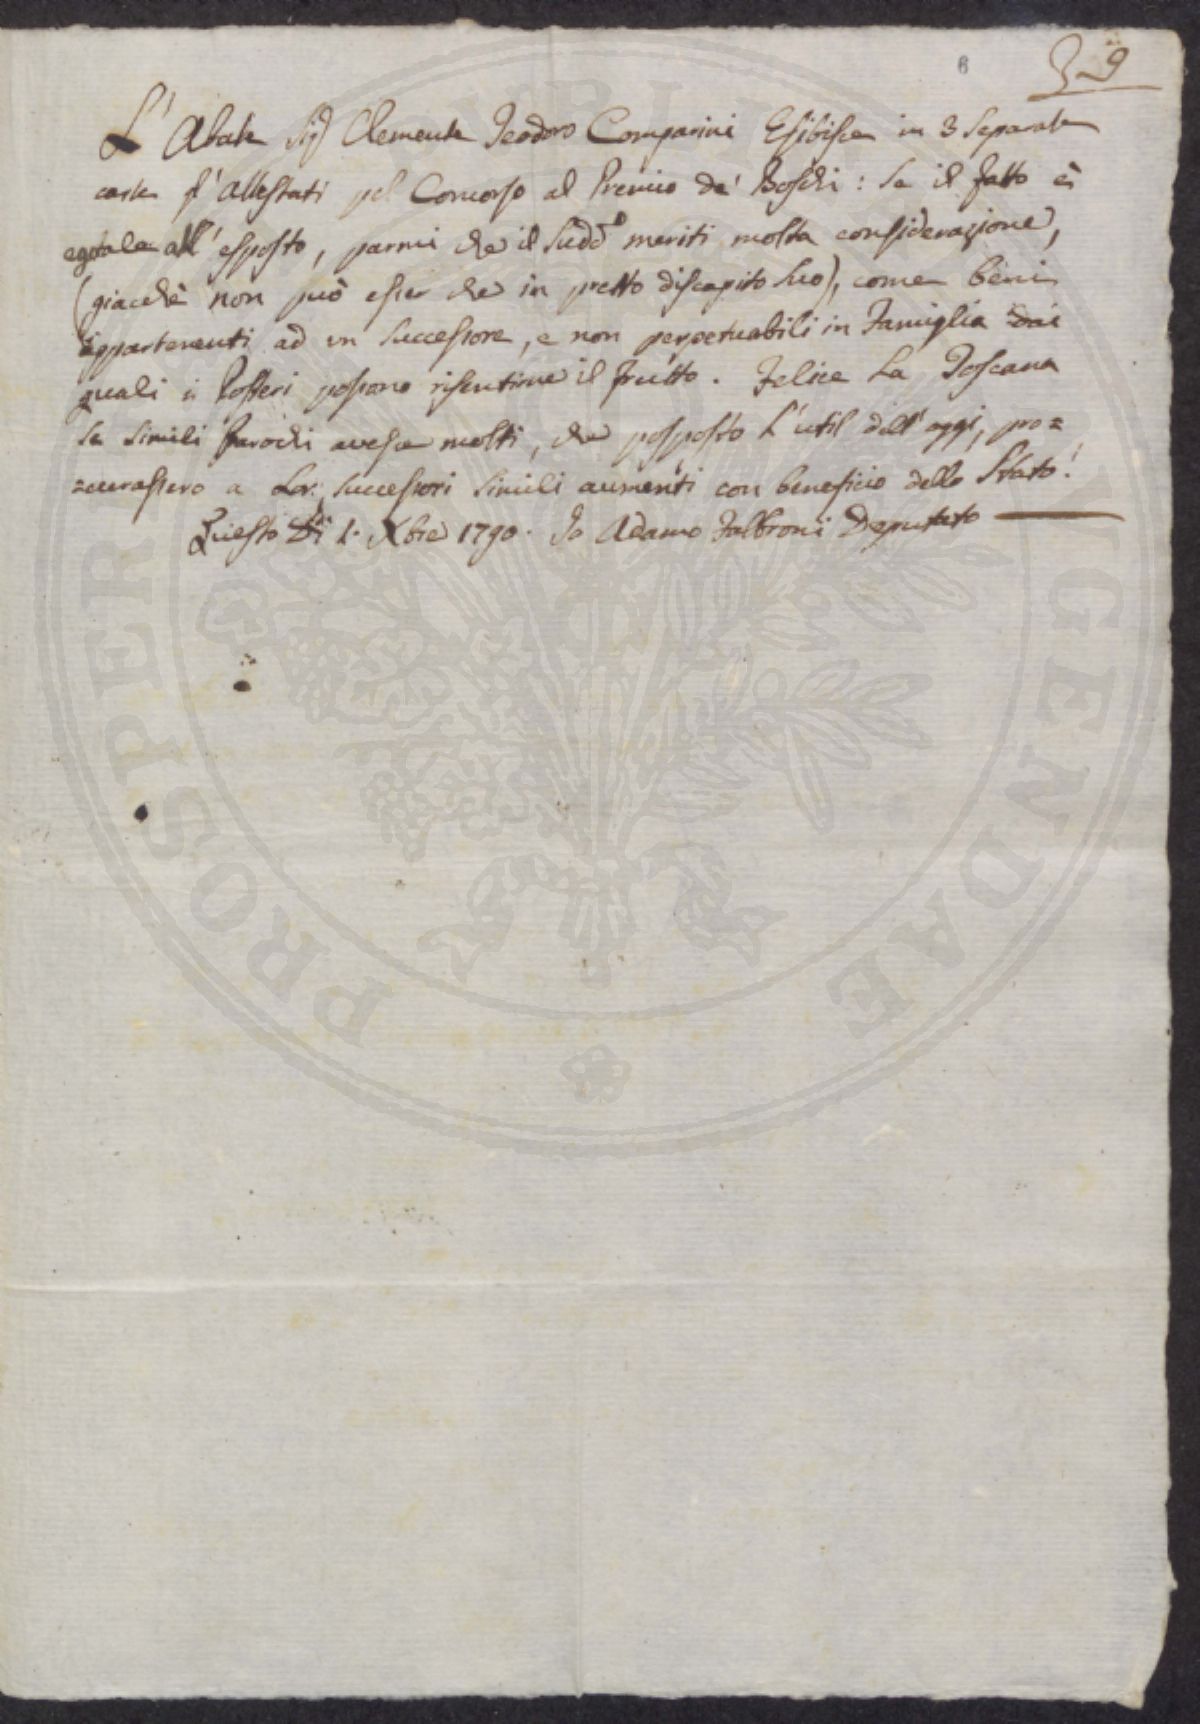 6
39
L' Abate Sig.r Clemente Teodoro Comparini Esibisce in 3 Separate
carte gl' Attestati pel Concorso al Premio de' Boschi: Se il fatto è
eguale all' esposto, parmi che il Sudd.o meriti molta considerazione,
(giacchè non può esser che in pretto discapito Suo), come beni
appartenenti ad un Successore, e non perpetuabili in Famiglia dai
quali i Posteri possono risentirne il frutto. Felice La Toscana
se simili Parochi avesse molti, che posposto L' util dell' oggi, pro=
=curassero a Lor Successori Simili aumenti con beneficio dello Stato!
Questo Dì 1. Xbre 1790. Io Adamo Fabbroni Deputato
PROSPERITATI PUBLICAE AUGENDAE